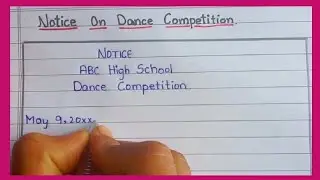 Notice On Dance Competition.
NOTICE
ABC High School
Dance Competition
May 9, 20xx